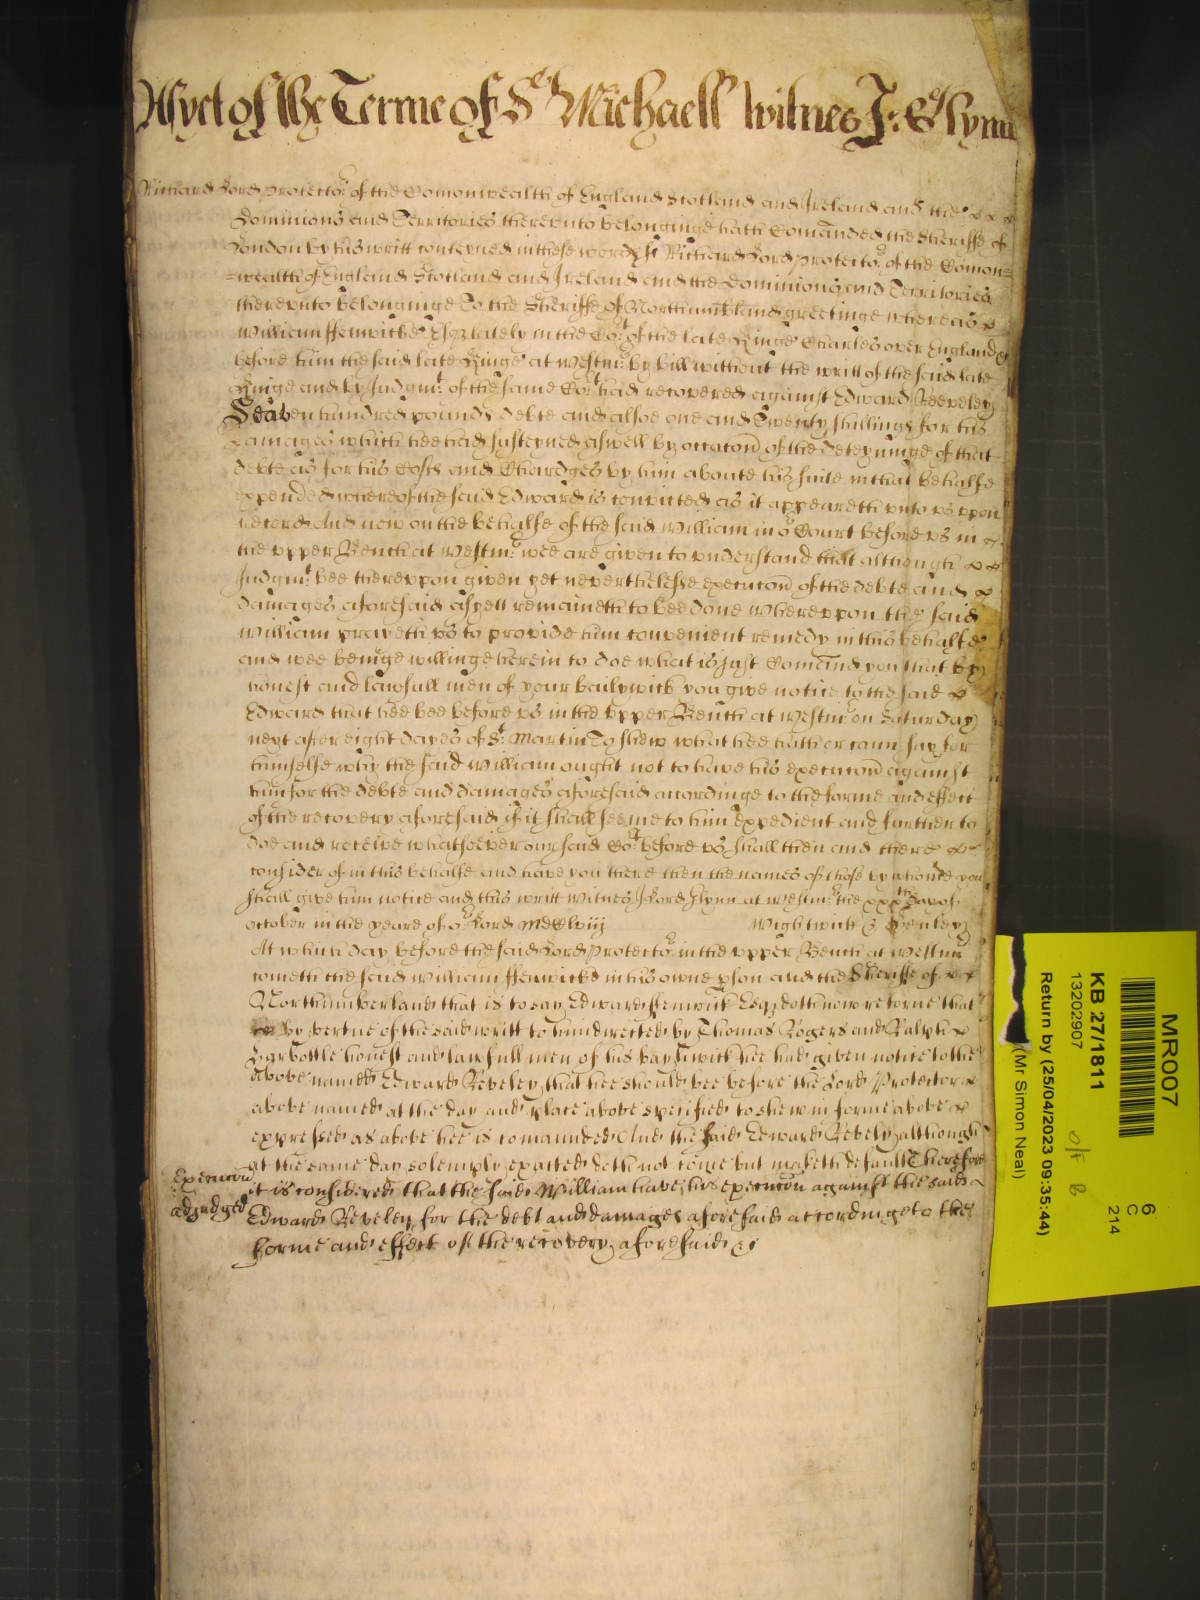 As yet of the Terme of St Michaell Witnes J: Glynn
Richard Lord Protector of the Comonwealth of England Scotland and Ireland and the
Dominions and Territories therevnto belonginge hath Comanded the Sheriffe of
London by his writt conteyned in these words ss Richard Lord Protector of the Comon=
=wealth of England Scotland and Ireland and the Dominions and Territories
therevnto belonginge To the Sheriffe of Northumbland greetinge whereas
William Ffenwicke Esqz lately in the Cort of the late Kinge Charles over England &c
before him the said late Kinge at Westmr by bill without the writt of the said late
Kinge and by Judgmt of the same Cort had recovered against Edward Reeveley
Seaben hundred pounds debte and alsoe one and Twenty shillings for his
Damages which hee had susteyned aswell by occacon of the deteyninge of that
debte as for his Costs and Chardges by him aboute his suite in that behalfe
expended whereof the said Edward is convicted as it appeareth vnto vs vpon
record And now on the behalfe of the said William in or Court before vs in
the vpper Bench at Westmr wee are given to vnderstand that although
Judgmt bee therevpon given yet neverthelesse execucon of the debte and
damages aforesaid as yett remaineth to bee done wherevpon the said
William prayeth vs to provide him convenient remedy in this behalfe
and wee beinge willinge herein to doe what is just Comand you that by
honest and lawfull men of your bailywick you give notice to the said
Edward that hee bee before vs in the vpper Bench at Westmr on Saturday
next after eight dayes of St Martin To shew what hee hath or cann say for
himselfe why the said William ought not to have his execucon against
him for the debte and damages aforesaid accordinge to the forme and effect
of the recovery aforesaid if it shall seeme to him expedient and further to
doe and receive whatsoever our said Cort before vs shall then and there
consider of in this behalfe and have you there then the names of those by whome you
shall give him notice and this writt Witnes John Glynn at Westmr the xxxth day of
October in the yeare of or Lord MDClviij Wightwick & Henley
At which day before the said Lord Protector in the vpper Bench at Westmr
cometh the said William Ffenwicke in his owne pson and the Sheriffe of
Northumberland that is to say Edward Ffenwick Esqz doth now retorne that
by vertue of the said writt to him directed by Thomas Rogers and Ralph
Harbottle honest and lawfull men of his baylywick hee had given notice to the
above named Edward Reveley that hee should bee before the Lord Protector
above named at the day and place above specified to shew in forme above
expressed as above hee is comaunded And the said Edward Reveley although
at the same day solemply exacted doth not come but maketh default Therefore
Execucon it is considered that the said William have his execucon against the said
adjudged Edward Reveley for the debt and damages aforesaid accordinge to the
forme and effect of the recovery aforesaid &c
MR007
KB 27/1811
13202907
Return by (25/04/2023 09:35:44)
(Mr Simon Neal)
6
C
214